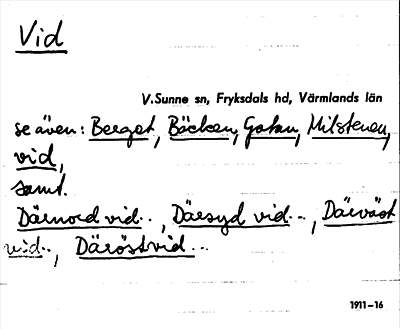 Vid
V.Sunne sn, Fryksdals hd, Värmlands län
se även: Berget, Bäcken, Gatan, Milstenen,
vid,
samt.
Därnord vid.., Därsyd vid.., Därväst
vid.., Däröstvid..
1911-16